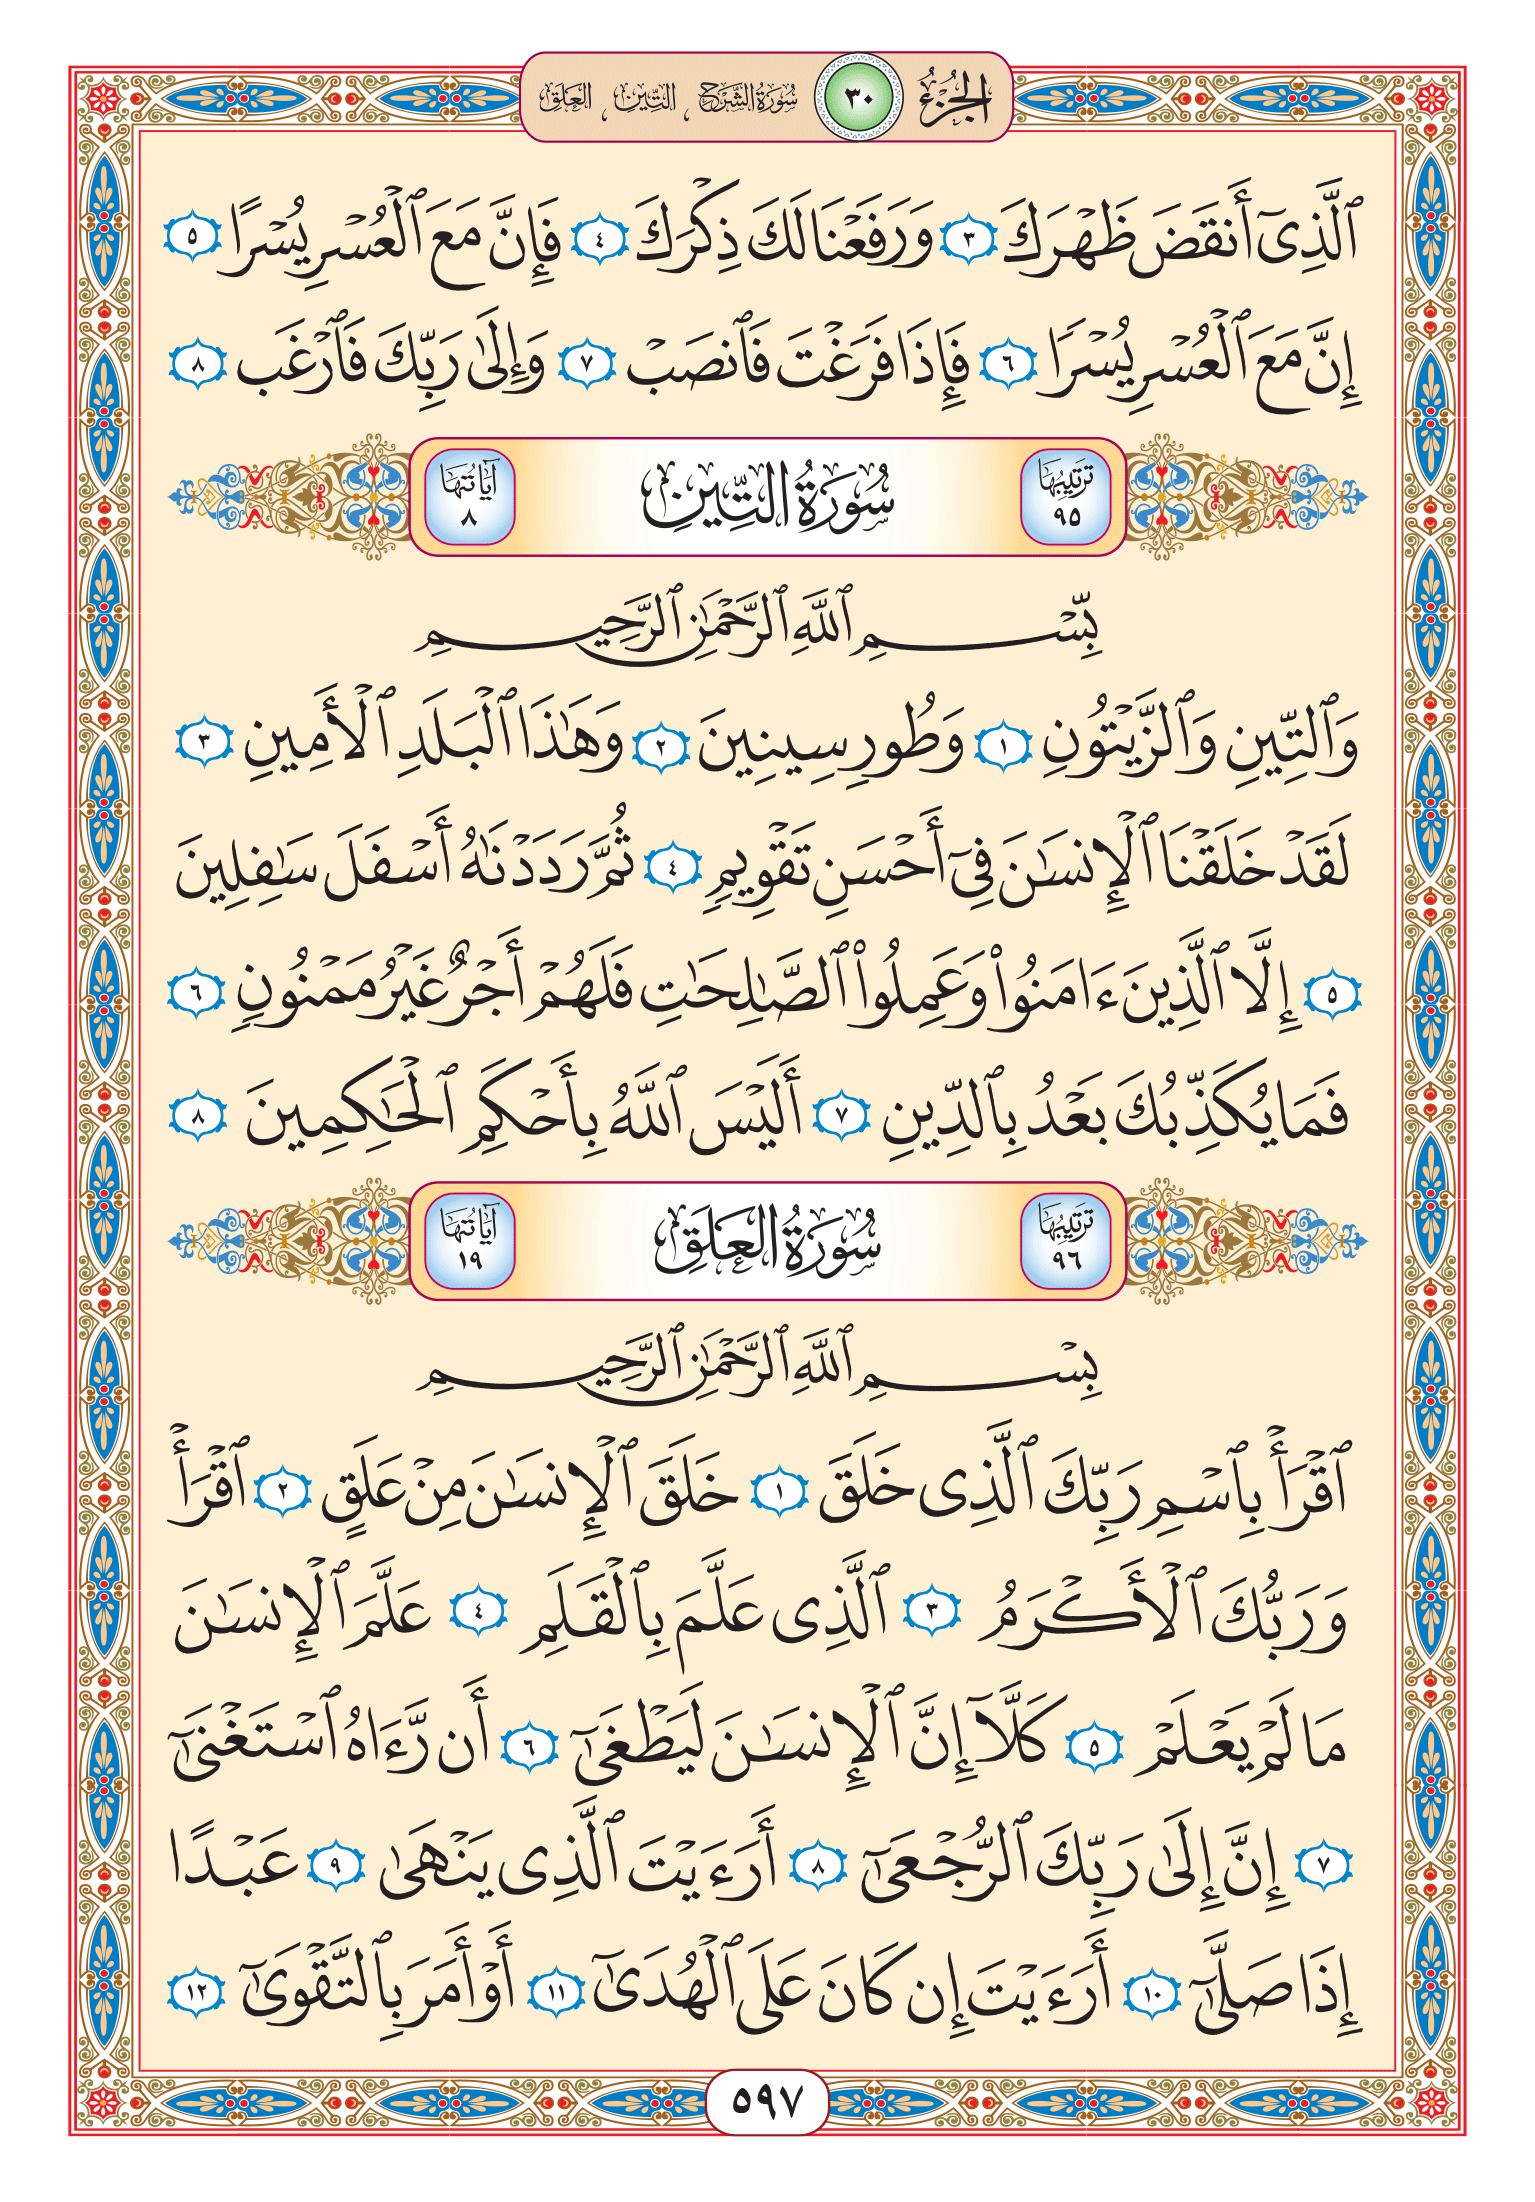 الجزء ٣٠ سورة الشرح ، التين ، العلق
ٱلَّذِىٓ أَنقَضَ ظَهْرَكَ ٣ وَرَفَعْنَا لَكَ ذِكْرَكَ ٤ فَإِنَّ مَعَ ٱلْعُسْرِ يُسْرًا ٥
إِنَّ مَعَ ٱلْعُسْرِ يُسْرًا ٦ فَإِذَا فَرَغْتَ فَٱنصَبْ ٧ وَإِلَىٰ رَبِّكَ فَٱرْغَب ٨
ترتيبها ٩٥ سُورَةُ التِّينِ آياتها ٨
بِّسْمِ ٱللَّهِ ٱلرَّحْمَٰنِ ٱلرَّحِيمِ
وَٱلتِّينِ وَٱلزَّيْتُونِ ١ وَطُورِ سِينِينَ ٢ وَهَٰذَا ٱلْبَلَدِ ٱلْأَمِينِ ٣
لَقَدْ خَلَقْنَا ٱلْإِنسَٰنَ فِىٓ أَحْسَنِ تَقْوِيمٍ ٤ ثُمَّ رَدَدْنَٰهُ أَسْفَلَ سَٰفِلِينَ
٥ إِلَّا ٱلَّذِينَ ءَامَنُوا۟ وَعَمِلُوا۟ ٱلصَّٰلِحَٰتِ فَلَهُمْ أَجْرٌ غَيْرُ مَمْنُونٍ ٦
فَمَا يُكَذِّبُكَ بَعْدُ بِٱلدِّينِ ٧ أَلَيْسَ ٱللَّهُ بِأَحْكَمِ ٱلْحَٰكِمِينَ ٨
ترتيبها ٩٦ سُورَةُ العَلَقِ آياتها ١٩
بِسْمِ ٱللَّهِ ٱلرَّحْمَٰنِ ٱلرَّحِيمِ
ٱقْرَأْ بِٱسْمِ رَبِّكَ ٱلَّذِى خَلَقَ ١ خَلَقَ ٱلْإِنسَٰنَ مِنْ عَلَقٍ ٢ ٱقْرَأْ
وَرَبُّكَ ٱلْأَكْرَمُ ٣ ٱلَّذِى عَلَّمَ بِٱلْقَلَمِ ٤ عَلَّمَ ٱلْإِنسَٰنَ
مَا لَمْ يَعْلَمْ ٥ كَلَّآ إِنَّ ٱلْإِنسَٰنَ لَيَطْغَىٰٓ ٦ أَن رَّءَاهُ ٱسْتَغْنَىٰٓ
٧ إِنَّ إِلَىٰ رَبِّكَ ٱلرُّجْعَىٰٓ ٨ أَرَءَيْتَ ٱلَّذِى يَنْهَىٰ ٩ عَبْدًا
إِذَا صَلَّىٰٓ ١٠ أَرَءَيْتَ إِن كَانَ عَلَى ٱلْهُدَىٰٓ ١١ أَوْ أَمَرَ بِٱلتَّقْوَىٰٓ ١٢
٥٩٧